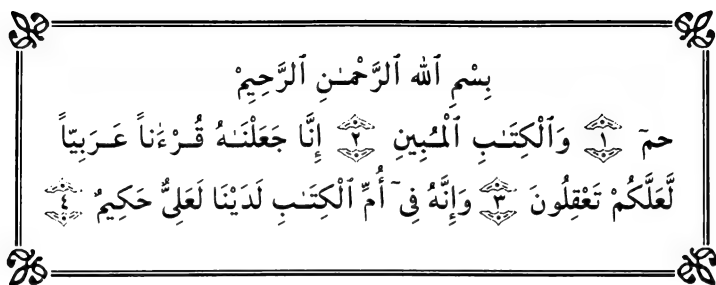 بِسْمِ ٱللَّهِ ٱلرَّحْمَـٰنِ ٱلرَّحِيمْ
حمٓ ١ وَٱلْكِتَـٰبِ ٱلْمُبِينِ ٢ إِنَّا جَعَلْنَـٰهُ قُرْءَٰناً عَرَبِيّاً
لَّعَلَّكُمْ تَعْقِلُونَ ٣ وَإِنَّهُ فِىٓ أُمِّ ٱلْكِتَـٰبِ لَدَيْنَا لَعَلِىٌّ حَكِيمٌ ٤